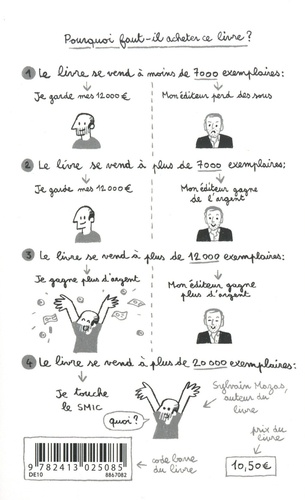 Pourquoi faut-il acheter ce livre ?
1 Le livre se vend à moins de 7000 exemplaires :
Je garde mes 12000 €
Mon éditeur perd des sous
2 Le livre se vend à plus de 7000 exemplaires :
Je garde mes 12000 €
Mon éditeur gagne
de l'argent
3 Le livre se vend à plus de 12000 exemplaires :
Je gagne plus d'argent
Mon éditeur gagne
plus d'argent
4 Le livre se vend à plus de 20000 exemplaires :
Je touche
le SMIC
quoi ?
Sylvain Mazas,
auteur du
livre
prix du
livre
10,50€
9 782413 025085
DE10
8867082
code barre
du livre